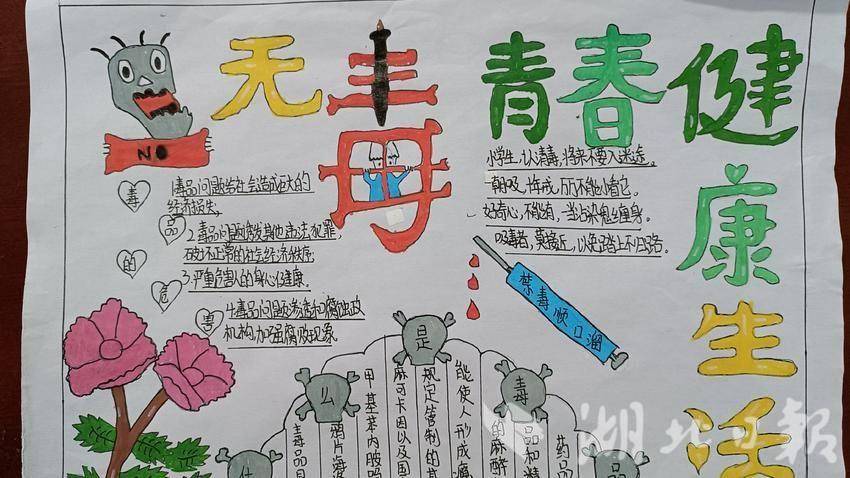 无毒青春健康生活
NO
毒品的危害
1毒品问题给社会造成巨大的
经济损失
2毒品问题诱发其他违法犯罪,
破坏正常的社会经济秩序;
3.严重危害人的身心健康.
4毒品问题渗透和腐蚀政
机构,加强腐败现象
小学生,认清毒,将来不要入迷途。
一朝吸,
好奇心,不能有,当心染鬼缠身。
吸毒者,莫接近,以免踏上不归路。
禁毒顺口溜
什么是毒品
毒品是
鸦片海
甲基苯丙胺
麻可卡因以及国
规定管制的
能使人形成瘾
的麻醉
品和精
药品
湖北日报